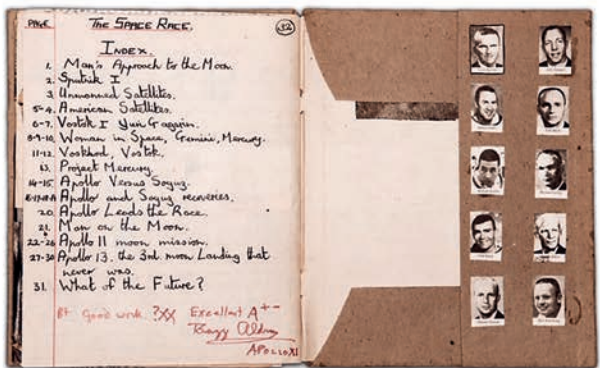 PAGE THE SPACE RACE. 32
INDEX.
1. Man's Approach to the Moon.
2. Sputnik I
3. Unmanned Satellites.
5-4. American Satellites.
6-7. Vostok I Yuri Gagarin.
8-9-10. Woman in Space, Gemini, Mercury.
11-12. Voskhod, Vostok.
13. Project Mercury.
14-15. Apollo Versus Soyuz.
Apollo and Soyuz recoveries.
20. Apollo Leads the Race.
21. Man on the Moon.
22-26 Apollo 11 moon mission.
27-30 Apollo 13. the 3rd moon Landing that
never was.
31. What of the Future?
B+ Good work. ?XX Excellent A+--
Buzz Aldrin
APOLLO XI